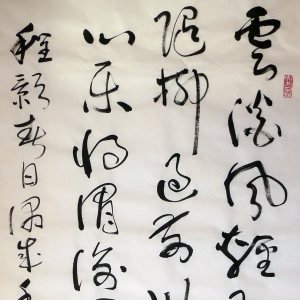 雲淡風輕
隨柳過前川
心樂將謂偷
程顥春日偶成